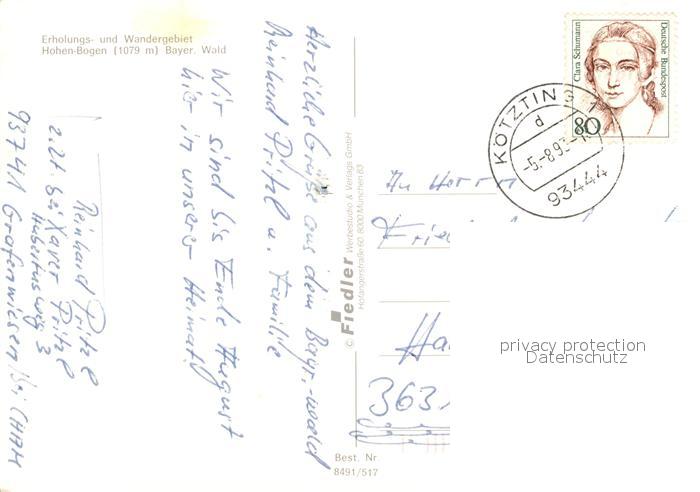 Erholungs- und Wandergebiet
Hohen-Bogen (1079 m) Bayer. Wald
Herzliche Grüße aus dem Bayr.-wald
Reinhard Pritzl u. Familie
Wir sind bis Ende August
hier in unserer Heimat!
Reinhard Pritzl
z. Zt. bei Xaver Pritzl
Hubertusweg 3
93741 Grafenwiesen/bei CHAM
© Fiedler Werbestudio & Verlags GmbH
Hofangerstraße 60, 8000 München 83
Best. Nr.
8491/517
Clara Schumann
Deutsche Bundespost
80
KÖTZTING 1
d
-5.-8.93
93444
An Herrn
Frie
Ha
363
privacy protection
Datenschutz